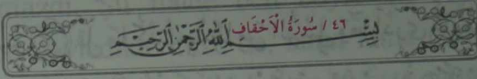 ٤٦ / سُورَةُ الْأَحْقَافِ
بِسْمِ اللَّهِ الرَّحْمٰنِ الرَّحِيمِ